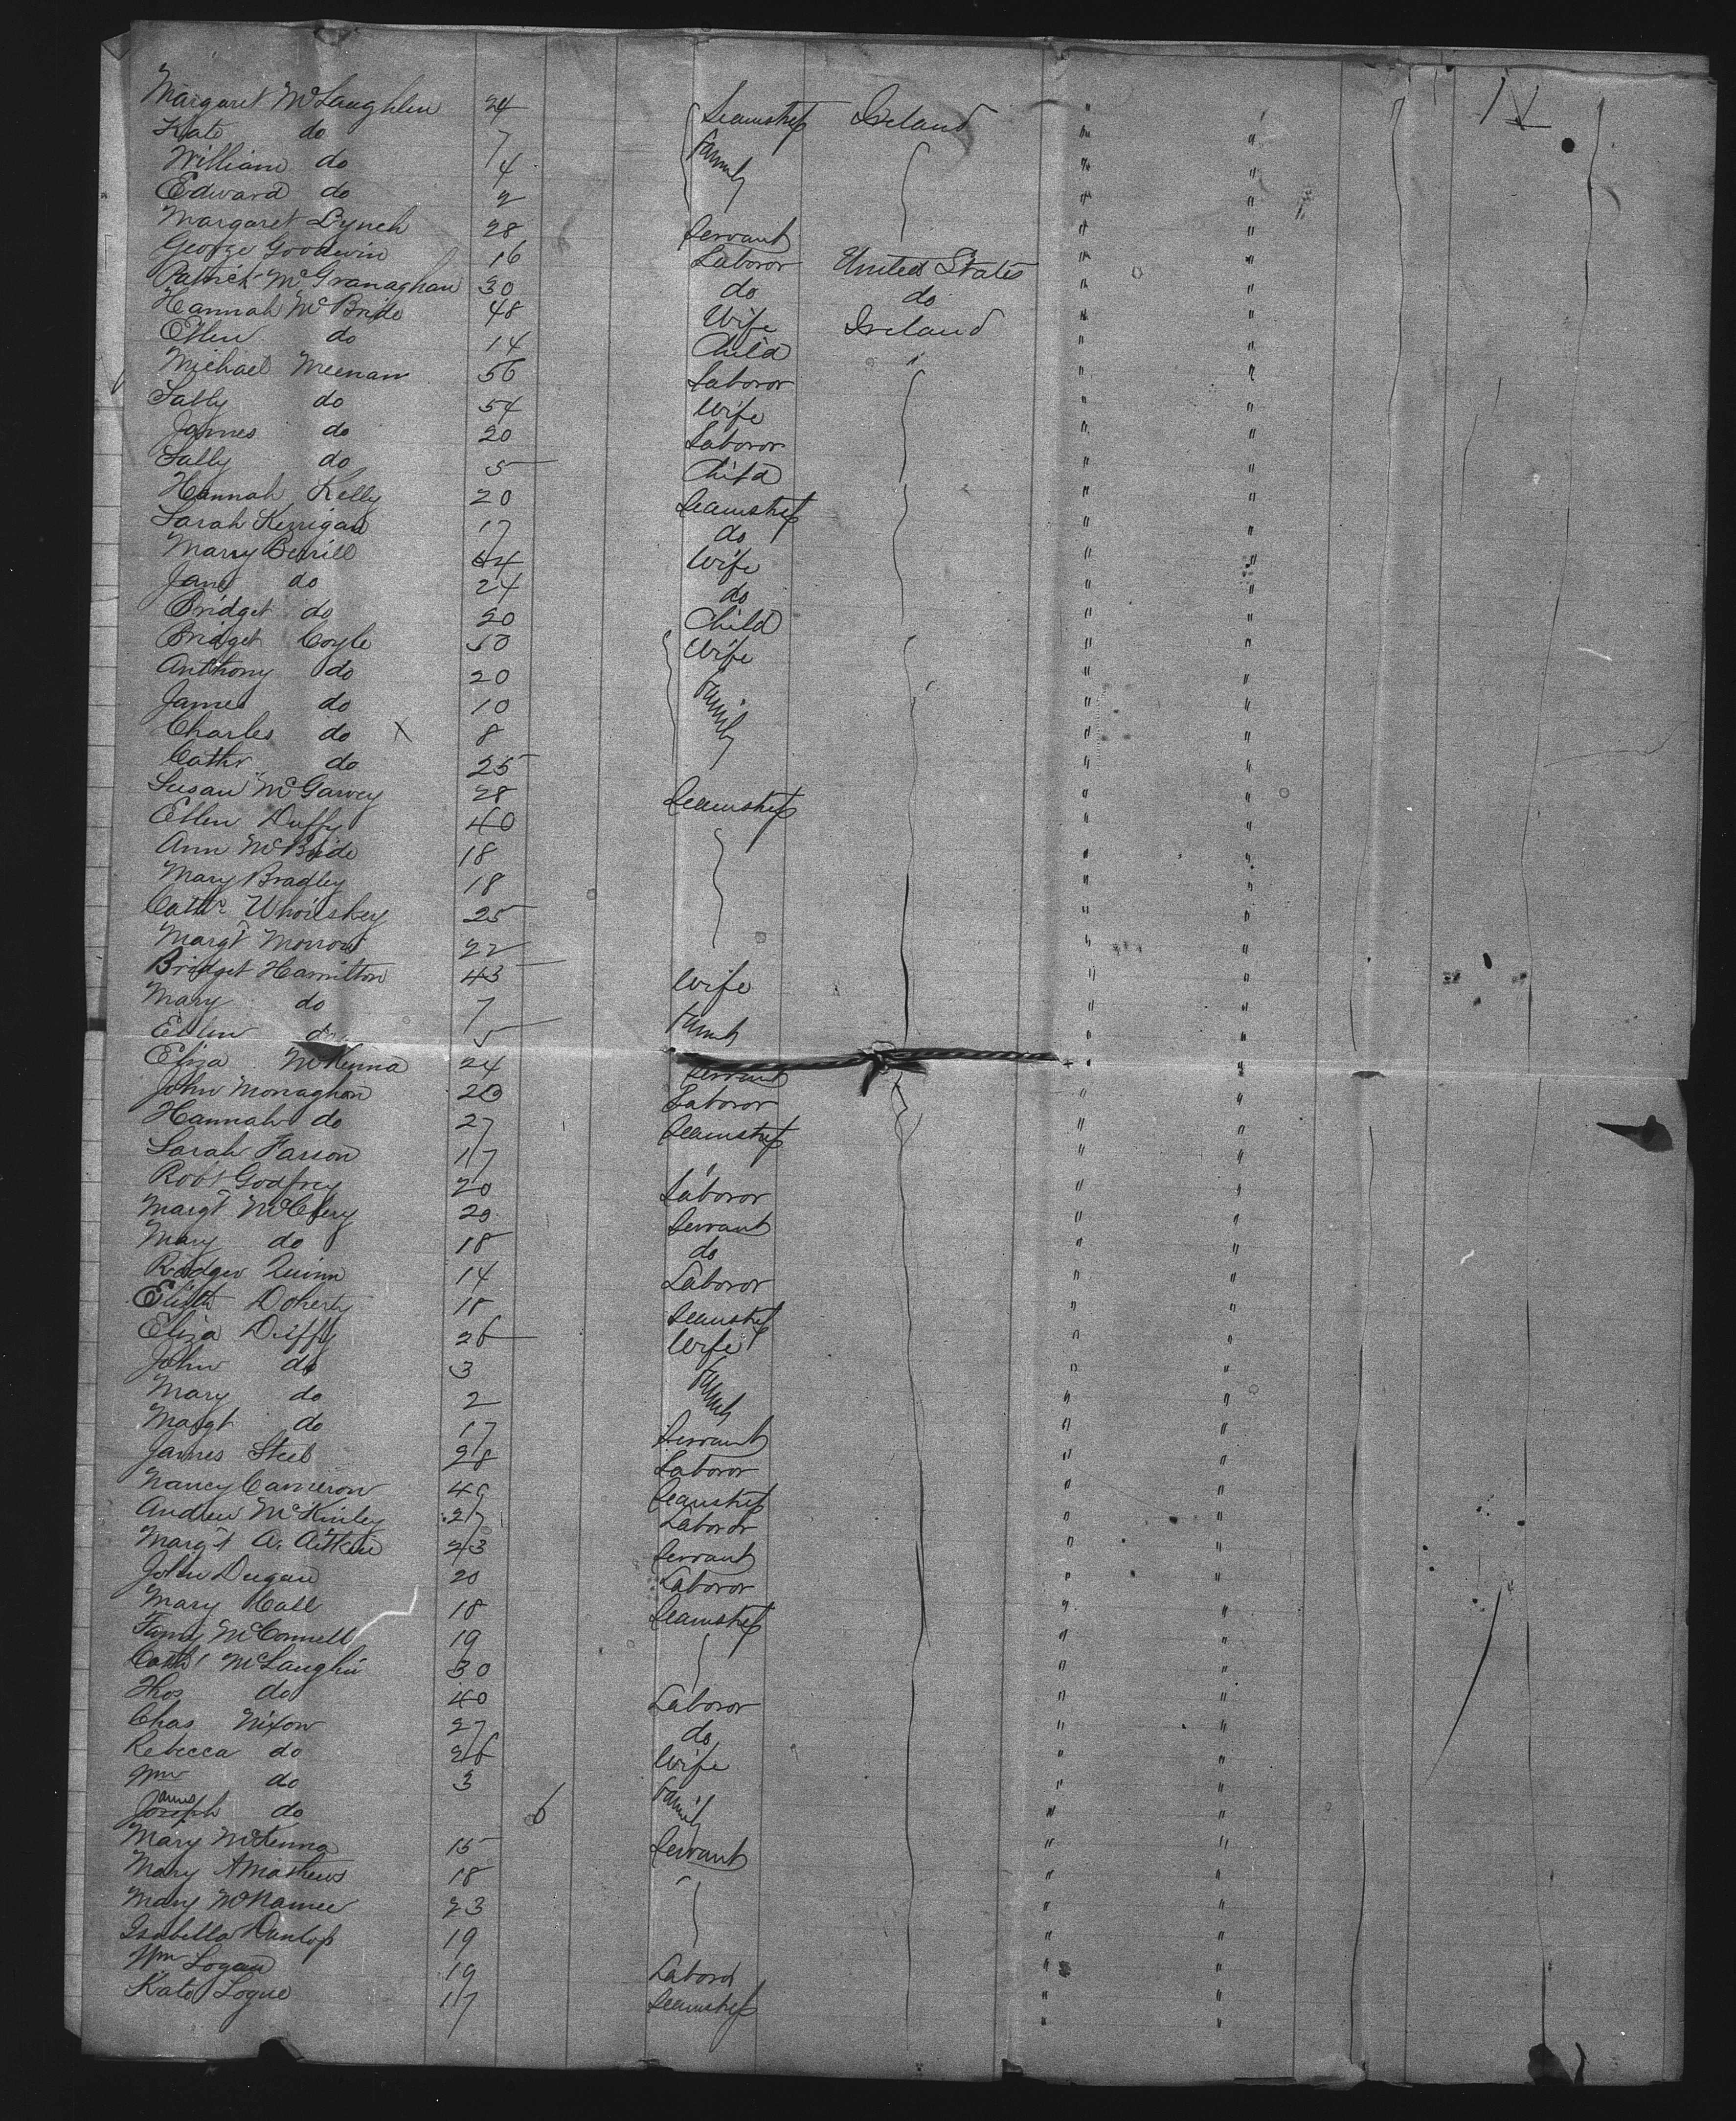 Margaret McLaughlin 24 Seamstress Ireland " "
Kate do 7 Family " "
William do 4 " "
Edward do 2 " "
Margaret Lynch 28 Servant " "
George Goodwin 16 Laboror United States " "
Patrick McGranaghan 30 do do " "
Hannah McBride 48 Wife Ireland " "
Ellen do 14 Child " " "
Michael Meenan 56 Laboror " "
Sally do 54 Wife " "
James do 20 Laboror " "
Sally do 5 Child " "
Hannah Kelly 20 Seamstress " "
Sarah Kerrigan 17 do " "
Mary Berrill 54 Wife " "
Jane do 24 do " "
Bridget do 20 Child " "
Bridget Coyle 50 Wife " "
Anthony do 20 Family " "
James do 10 " "
Charles do X 8 " "
Cathr do 25 " "
Susan McGarvey 28 Seamstress " "
Ellen Duffy 40 " "
Ann McBride 18 " "
Mary Bradley 18 " "
Cathr Whoriskey 25 " "
Margt Morrow 22 " "
Bridget Hamilton 43 Wife " "
Mary do 7 Family " "
Ellen do 5 " "
Eliza McKenna 24 Servant " "
John Monaghan Laboror " "
Hannah do 27 Seamstress " "
Sarah Farson 17 " "
Robt Godfrey 20 Laboror " "
Margt 20 Servant " "
Mary do 18 do " "
Rodger Quinn 14 Laboror " "
Elisth Doherty 18 Seamstress " "
Eliza Duffy 26 Wife " "
John do 3 Family " "
Mary do 2 " "
Margt do 17 Servant " "
James Steel 28 Laboror " "
Nancy Cameron 40 Seamstress " "
Andrew McKinley 27 Laboror " "
Margt A. Aitken 23 Servant " "
John Dugan 20 Laboror " "
Mary Hall 18 Seamstress " "
Fanny McConnell 19 " "
Cath McLaughlin 30 " "
Thos do 40 Laboror " "
Chas Nixon 27 do " "
Rebecca do 26 Wife " "
Wm do 3 Family " "
James
Joseph do 6 " "
Mary McKenna 15 Servant " "
Mary A Mathews 18 " "
Mary McNamee 23 " "
Isabella Dunlop 19 " "
Wm Logan 19 Laboror " "
Kate Logue 17 Seamstress " "